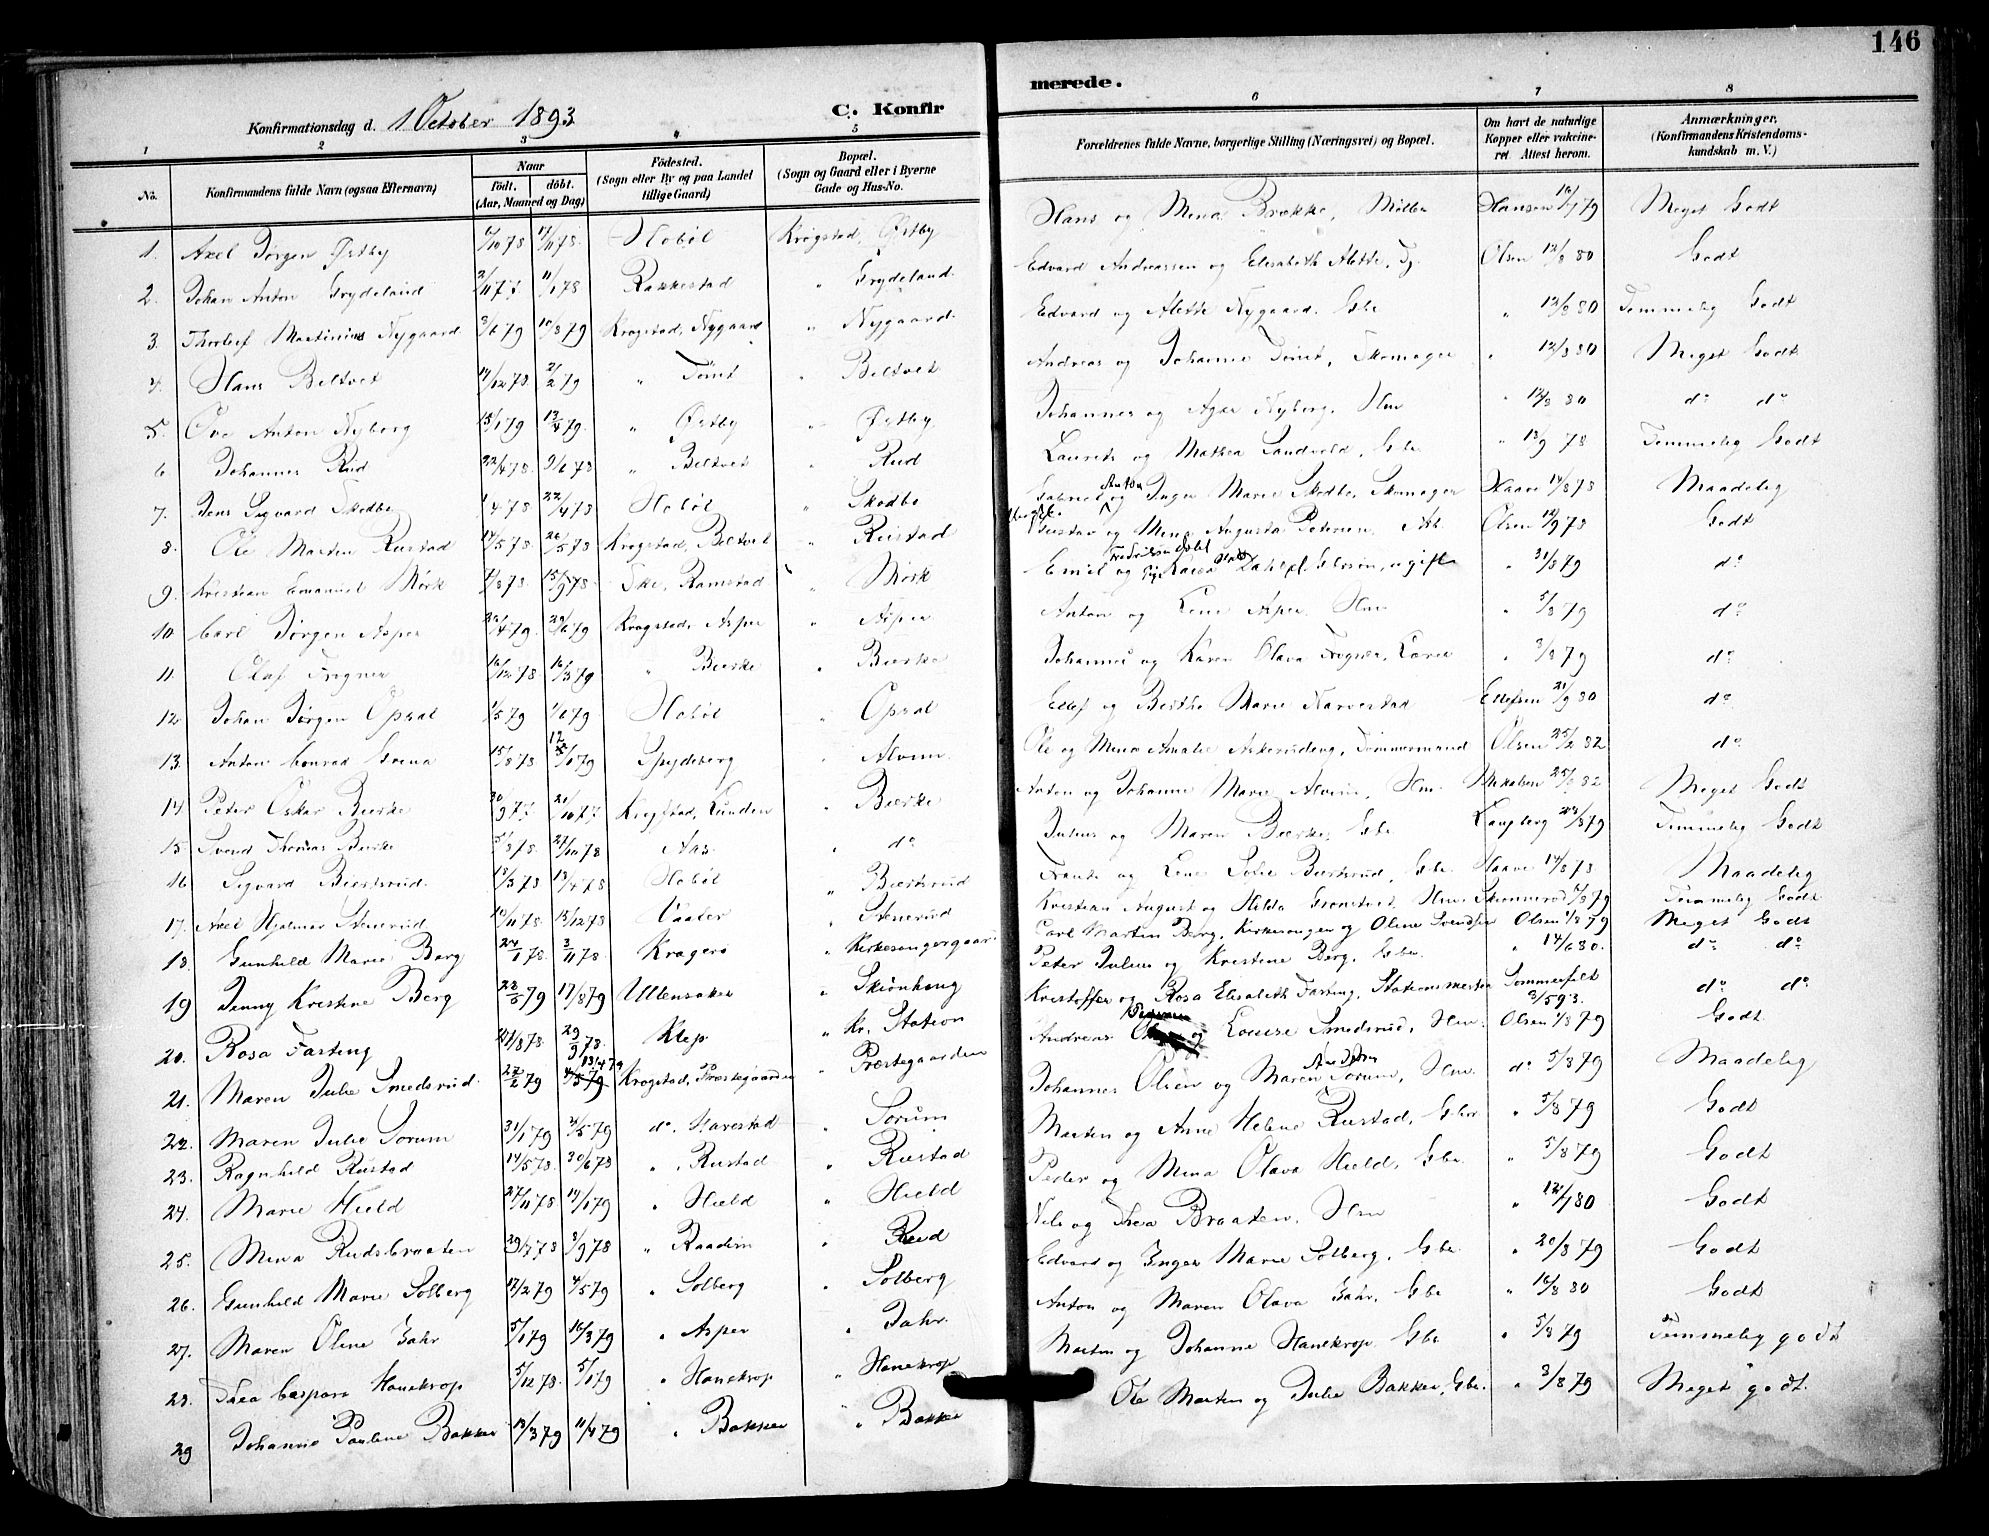 146
Konfirmationsdag d. 1 October 1893
C. Konfir
merede.
1
2
3
4
5
6
7
8
No.
Konfirmandens fulde Navn (ogsaa Efternavn)
Naar
födt. döbt.
(Aar, Maaned og Dag)
Födested.
(Sogn eller By og paa Landet
tillige Gaard)
Bopæl.
(Sogn og Gaard eller i Byerne
Gade og Hus-No.
Forældrenes fulde Navne, borgerlige Stilling (Næringsvei) og Bopæl.
Om havt de naturlige
Kopper eller vakcine-
ret Attest herom.
Anmærkninger.
(Konfirmandens Kristendoms-
kundskab m. V.)
1. Axel Jørgen Østby Hobøl Krogstad, Østby Hans og Mina Brække, Møller Hansen Meget Godt
2. Johan Anton Grydeland 11/1 78 Rakkestad " Grydeland Edvard Andreassen og Elisabeth Alette Olsen 12/8 80 Godt
3. Thorleif Martinius Nygaard 3/6 79 10/8 79 Krogstad, Nygaard " Nygaard Edvard og Alette Nygaard, Gbr " 12/8 80 Temmelig Godt
4. Hans Biltvet 14/12 78 2/2 79 " Tomt " Biltvet Andreas og Johanne Tomt, Skomager " 12/8 80 Meget Godt
5. Ove Anton Nyborg 15/1 79 13/4 79 " Østby " Østby Johannes og Nyborg, Hm " 12/8 80 do do
6. Johannes Rud 22/4 78 9/6 78 " Biltvet " Rud Laurits og Mathea Sandvold, Gbr " 13/9 78 Temmelig Godt
7. Jens Sigvard Skodbo 4 78 22/4 78 Hobøl " Skodbo Gabriel Anton og Inger Marie Skodbo, Skomager Haave 14/8 78 Maadelig
8. Ole Martin Rustad 14/5 78 26/5 78 Krogstad, Biltvet " Rustad Gustav og Mina Augusta Petersen, Arb. Olsen 12/9 78 Godt
9. Kristian Emanuel Mørk 1/8 78 15/9 78 Ske, Ramstad " Mørk Emil og Karen ugift " 31/8 79 do
10. Carl Jørgen Asper 26/4 79 29/6 79 Krogstad, Asper " Asper Anton og Lene Asper, Hm " 5/8 79 do
11. Olaf Frigner 16/12 78 16/3 79 " Bierke " Bierke Johannes og Karen Olava " 3/8 79 do
12. Johan Jørgen Opsal 1/5 79 1/6 79 Hobøl " Opsal Ellef og Berthe Marie Ellefsen 21/9 80 do
13. Anton Conrad 15/8 78 Spydeberg " Alvim Ole og Mina Amalie Askerudeng, Tømmermand Olsen 25/2 82 do
14. Peter Oskar Bierke 30/9 77 21/10 77 Krogstad, Lunden " Bierke Anton og Johanne Marie Alvim, Hm. Mikelsen 82 Meget Godt
15. Svend Thomas Bierke 5/8 78 27/10 78 Aas " do Julius og Maren Bierke, Gbr Langberg 23/8 79 Temmelig Godt
16. Sigvard Biertsrud 18/3 78 13/4 78 Hobøl " Biertsrud Frants og Lene Sofie Biertsrud, Gbr Haave 14/8 78 Maadelig
17. Axel Hjalmar Stenerud 10/11 78 15/12 78 Vaaler " Stenerud Kristian August og Hilda Grønstvet, Hm 1/8 79 Temmelig Godt
18. Gunhild Marie Berg 24/1 78 3/11 78 Kragerø " Kirkesangergaar Carl Martin Berg, Kirkesanger og Oline Svendsen Olsen 1/8 79 Meget Godt
19 Jenny Kristine Berg 22/5 79 17/8 79 Ullensaker " Skiønhaug Peter Julius og Kristine Berg, Gbr. " 14/6 80. do do
20. Rosa Fasting 21/8 78 29/9 78. Klep " Kr. Station Kristoffer og Rosa Elisabeth Fasting, Stationsmester Sommerfelt 3/5 93. do do
21. Maren Julie Smedsrud. 27/2 79 13/4 79 Krogstad, Præstegaarden " Præstegaarden Andreas og Louise Smedsrud, Hm. Olsen 1/8 79 Godt
22. Maren Julie Sorum 31/1 79 4/5 79 do. Harestad " Sorum Johannes Olsen og Maren Sorum, Hm do 5/8 79 Maadelig
23. Ragnhild Rustad 14/5 78 30/6 78 " Rustad " Rustad Martin og Anne Helene Rustad, Gbr " 5/8 79 Godt
24. Marie Hield 27/11 78 19/1 79 " Hield " Hield Peder og Mina Olava Hield, Gbr " 5/8 79 Godt
25. Mina Rudsbraaten 29/7 78 8/9 78 " Raadim " Rud Nils og Thea Braaten, Hm " Godt
26. Gunhild Marie Solberg 17/2 79 4/5 79 " Solberg " Solberg Edvard og Inger Marie Solberg, Gbr " 20/8 79 Godt
27. Maren Oline Jahr 5/1 79 16/3 79 " Asper " Jahr Anton og Maren Olava Jahr, Gbr " 16/8 80 Godt
28. Thea Caspara Hanekrop 5/12 78. 5/1 79 " Hanekrop " Hanekrop Martin og Johanne Hanekrop, Gbr " 5/8 79 Temmelig godt
29 Johanne Pauline Bakker 13/3 79 11/4 79 " Bakker " Bakker Ole Morten og Julie Bakker, Gbr. " 3/8 79 Meget godt.